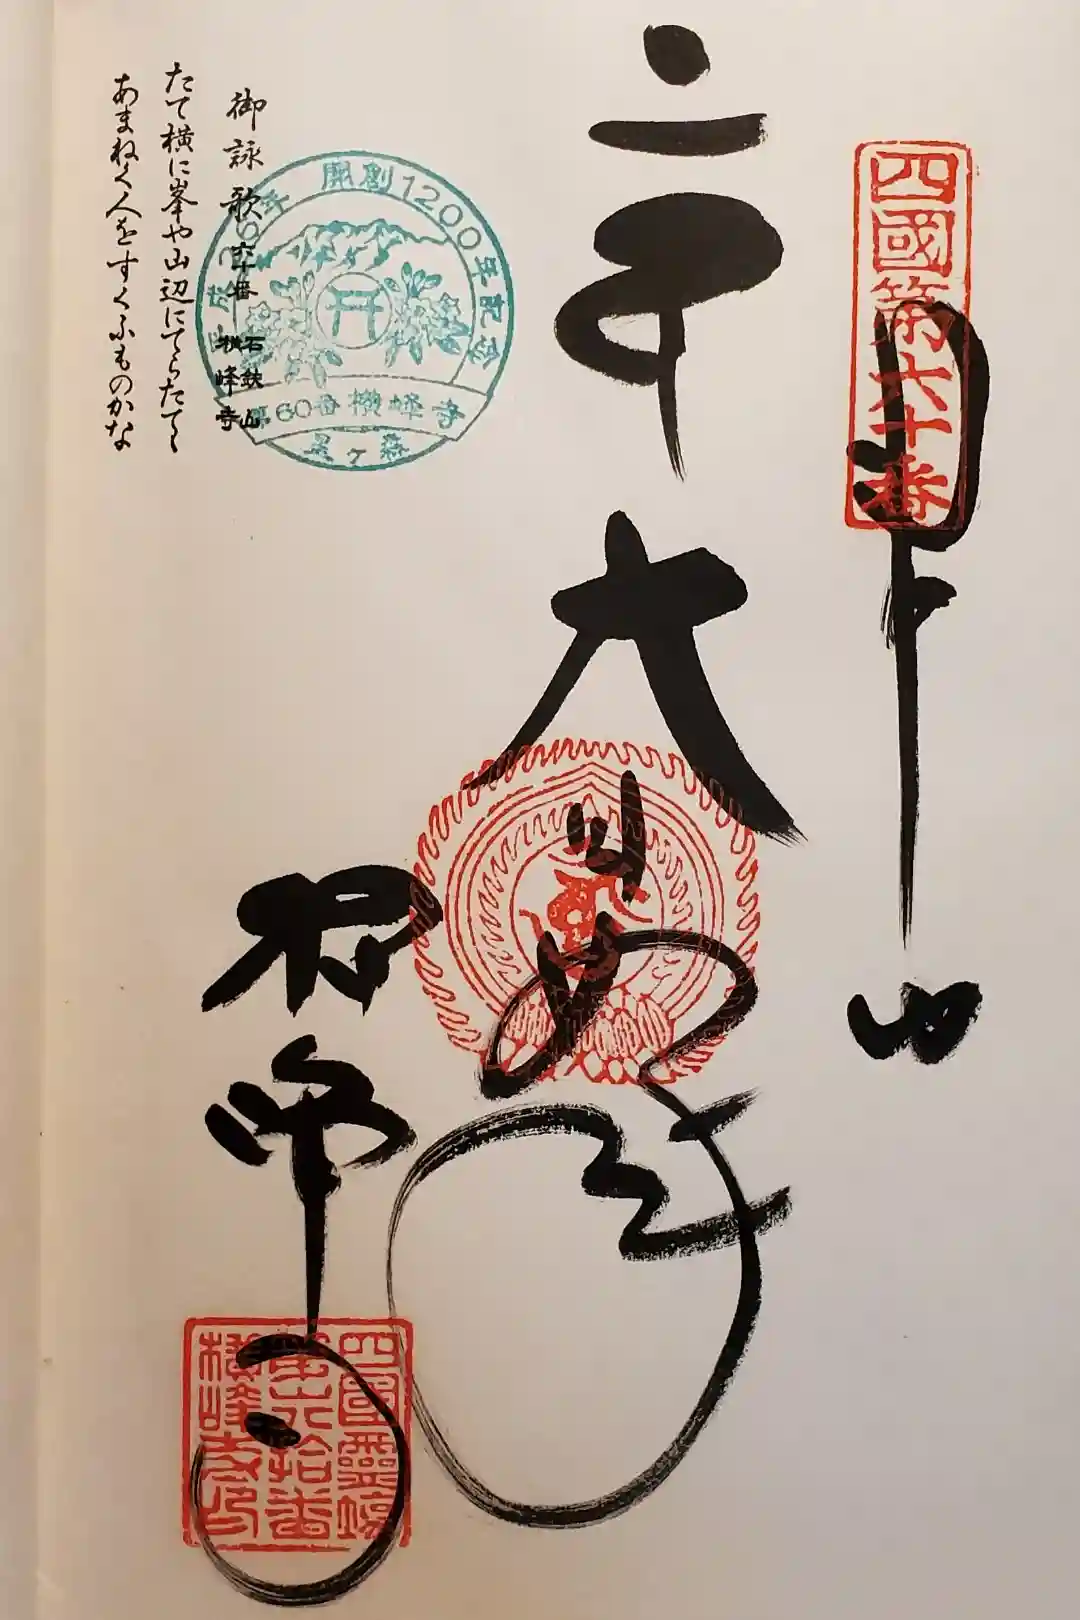 四國第六十番
奉納
大日如来
横峰寺
四國霊場第六拾番横峰寺印
平成26年 開創1200年記念
第60番横峰寺
星ヶ森
御詠歌 六十番 石鈇山 横峰寺
たて横に峯や山辺にてらたてゝ
あまねく人をすくふものかな